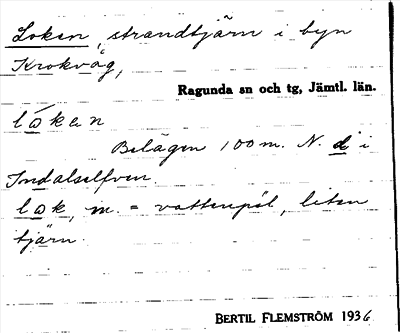 Loken, strandtjärn i byn
Krokvåg,
Ragunda sn och tg, Jämtl. län.
lǿken
Belägen 100 m. N. i
Indalselfven
løk, m. = vattenpöl, liten
tjärn.
BERTIL FLEMSTRÖM 1936